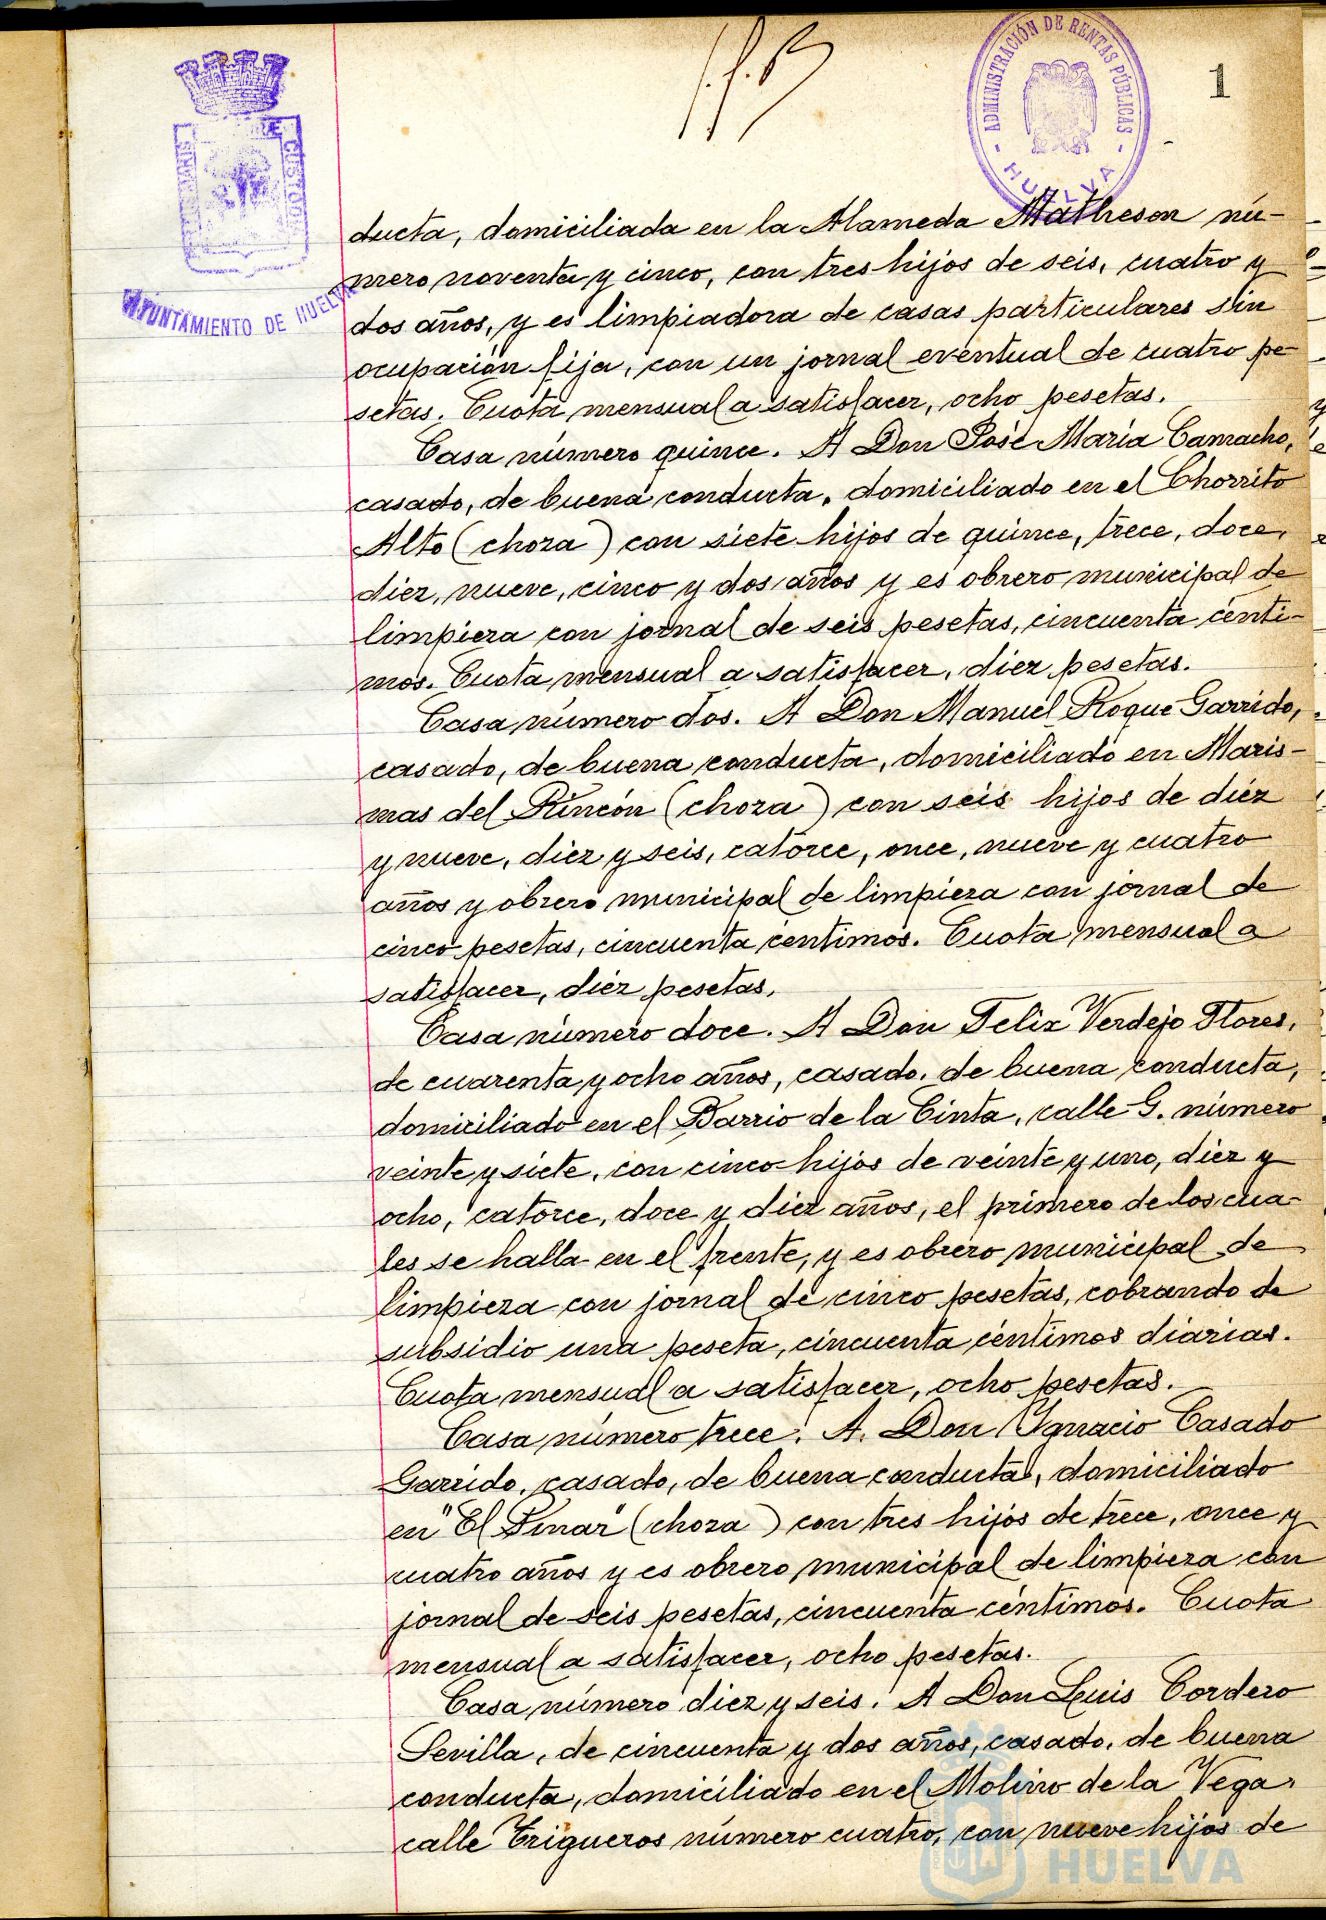 ADMINISTRACIÓN DE RENTAS PÚBLICAS
- HUELVA -
1
CUSTODIA
AYUNTAMIENTO DE HUELVA
ducta, domiciliada en la Alameda Matheson nú-
mero noventa y cinco, con tres hijos de seis, cuatro y
dos años, y es limpiadora de casas particulares sin
ocupación fija, con un jornal eventual de cuatro pe-
setas. Cuota mensual a satisfacer, ocho pesetas.
Casa número quince. A Don José María Camacho,
casado, de buena conducta, domiciliado en el Chorrito
Alto (choza) con siete hijos de quince, trece, doce,
diez, nueve, cinco y dos años y es obrero municipal de
limpieza con jornal de seis pesetas, cincuenta cénti-
mos. Cuota mensual a satisfacer, diez pesetas.
Casa número dos. A Don Manuel Roque Garrido,
casado, de buena conducta, domiciliado en Maris-
mas del Rincón (choza) con seis hijos de diez
y nueve, diez y seis, catorce, once, nueve y cuatro
años y obrero municipal de limpieza con jornal de
cinco pesetas, cincuenta céntimos. Cuota mensual a
satisfacer, diez pesetas.
Casa número doce. A Don Felix Verdejo Flores,
de cuarenta y ocho años, casado, de buena conducta,
domiciliado en el Barrio de la Cinta, calle G. número
veinte y siete, con cinco hijos de veinte y uno, diez y
ocho, catorce, doce y diez años, el primero de los cua-
les se halla en el frente, y es obrero municipal de
limpieza con jornal de cinco pesetas, cobrando de
subsidio una peseta, cincuenta céntimos diarias.
Cuota mensual a satisfacer, ocho pesetas.
Casa número trece. A Don Ygnacio Casado
Garrido, casado, de buena conducta, domiciliado
en "El Pinar" (choza) con tres hijos de trece, once y
cuatro años y es obrero municipal de limpieza con
jornal de seis pesetas, cincuenta céntimos. Cuota
mensual a satisfacer, ocho pesetas.
Casa número diez y seis. A Don Luis Cordero
Sevilla, de cincuenta y dos años, casado, de buena
conducta, domiciliado en el Molino de la Vega,
calle Trigueros número cuatro, con nueve hijos de
HUELVA